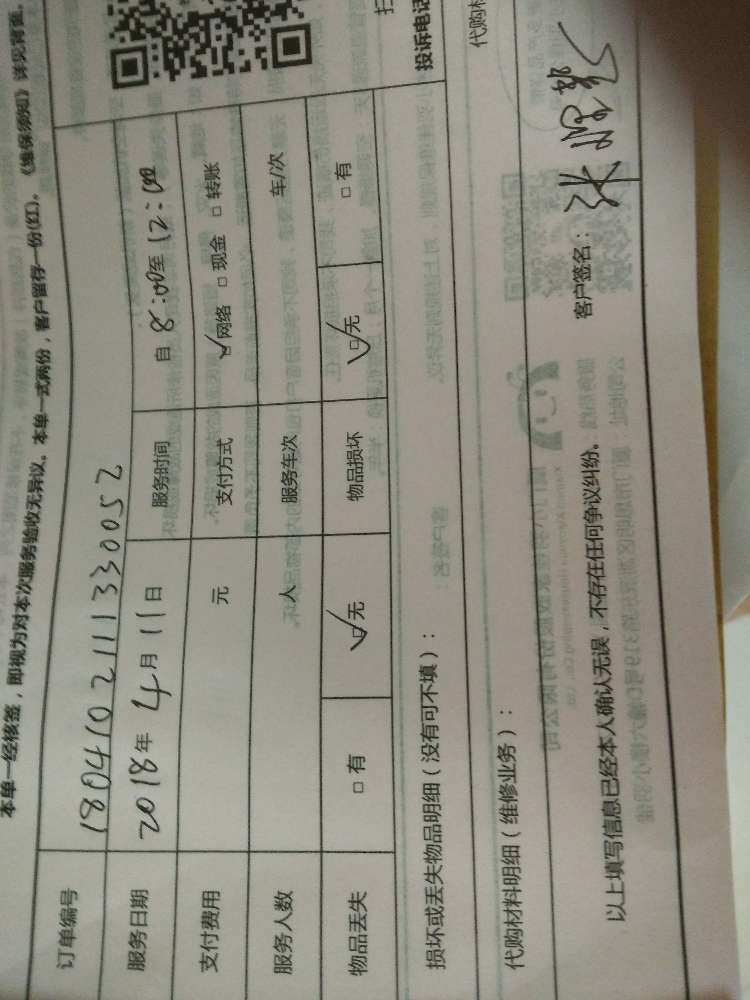 本单一经核签，即视为对本次服务验收无异议。本单一式两份，客户留存一份(红)。《维保须知》详见背面。
订单编号 180410211133 0052
服务日期 2018年4月11日 服务时间 自8:00至12:00
支付费用 元 支付方式 ☑网络 □现金 □转账
服务人数 人 服务车次 车/次
物品丢失 □有 ☑无 物品损坏 ☑无 □有
损坏或丢失物品明细（没有可不填）：
投诉电话
代购材料明细（维修业务）：
代购材
客户签名：
以上填写信息已经本人确认无误，不存在任何争议纠纷。